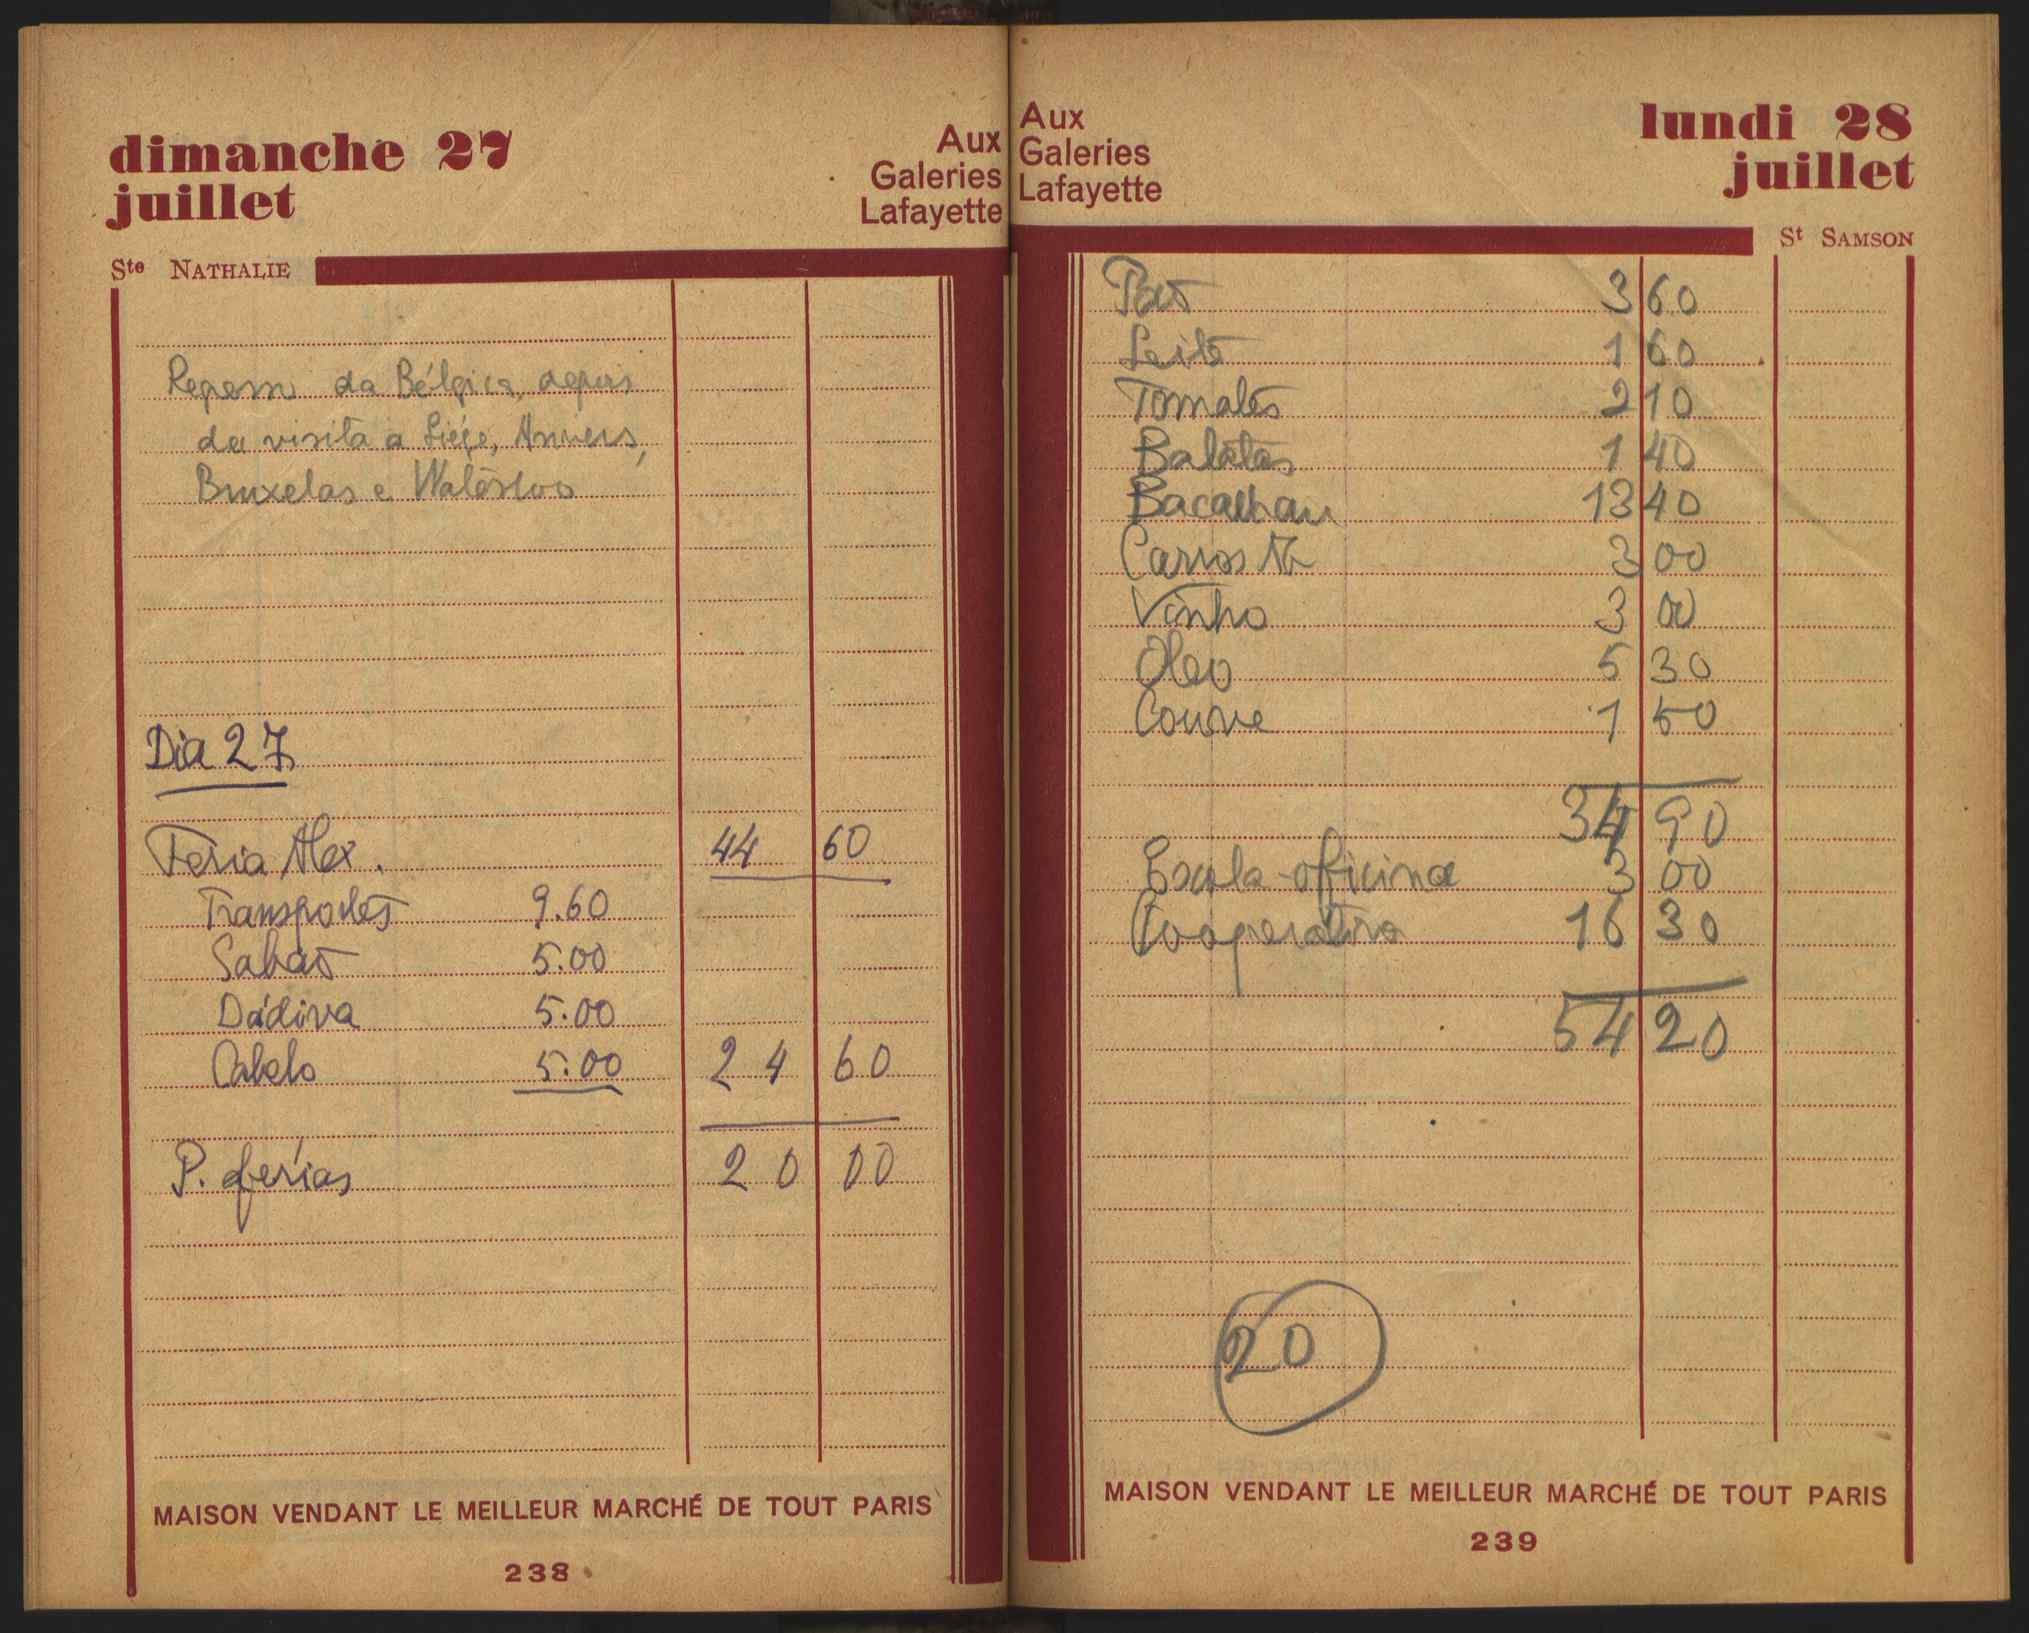 dimanche 27
juillet
Aux
Galeries
Lafayette
Ste NATHALIE
da Bélgica, depois
da visita a Liége, Anvers,
Bruxelas e Waterloo
Dia 27
Feria Alex. 44 60
Transportes 9.60
Sabão 5.00
Dádiva 5.00
Cabelo 5.00 24 60
P. ferias 20 00
MAISON VENDANT LE MEILLEUR MARCHÉ DE TOUT PARIS
238
Aux
Galeries
Lafayette
lundi 28
juillet
St SAMSON
Pão 3 60
Leite 1 60
Tomates 2 10
Batatas 1 40
Bacalhau 13 40
Carros 3 00
Vinho 3 00
Oleo 5 30
Couve 1 50
34 90
Escola-oficina 3 00
Cooperativa 16 30
54 20
20
MAISON VENDANT LE MEILLEUR MARCHÉ DE TOUT PARIS
239